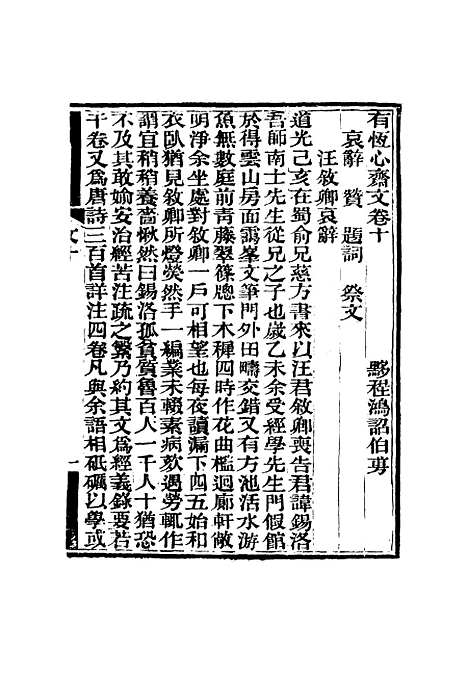 有恆心齋文卷十
黟程鴻詔伯旉
哀辭　贊　題詞　祭文
汪敘卿哀辭
道光己亥在蜀俞兄慈方書來以汪君敘卿喪告君諱錫洛
吾師南士先生從兄之子也歲乙未余受經學先生門假館
於得雲山房面靄峯文筆門外田疇交錯又有方池活水游
魚無數庭前青藤翠篠牕下木穉四時作花曲檻迴廊軒敞
明淨余坐處對敘卿一戶可相望也每夜讀漏下四五始和
衣臥猶見敘卿所燈熒然手一編業未輟素病欬遇勞輒作
謂宜稍稍養嗇愀然曰錫洛孤貧質魯百人一千人十猶恐
不及其敢婾安治經苦注疏之繁乃約其文爲經義錄要若
干卷又爲唐詩三百首詳注四卷凡與余語相砥礪以學或
文十
一